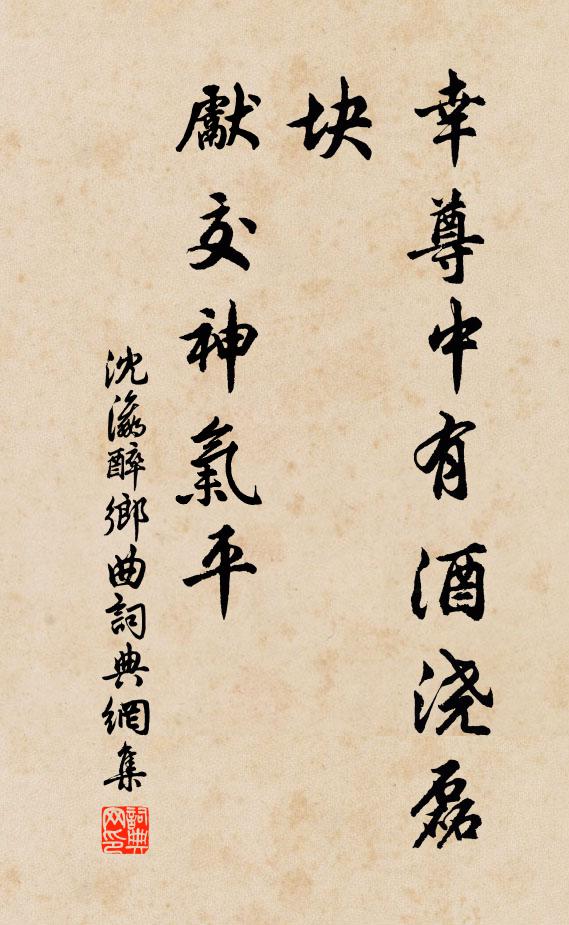 幸尊中有酒浇磊
块
獻交神氣平
沈瀛醉鄉曲詞典網集
詞典
网印